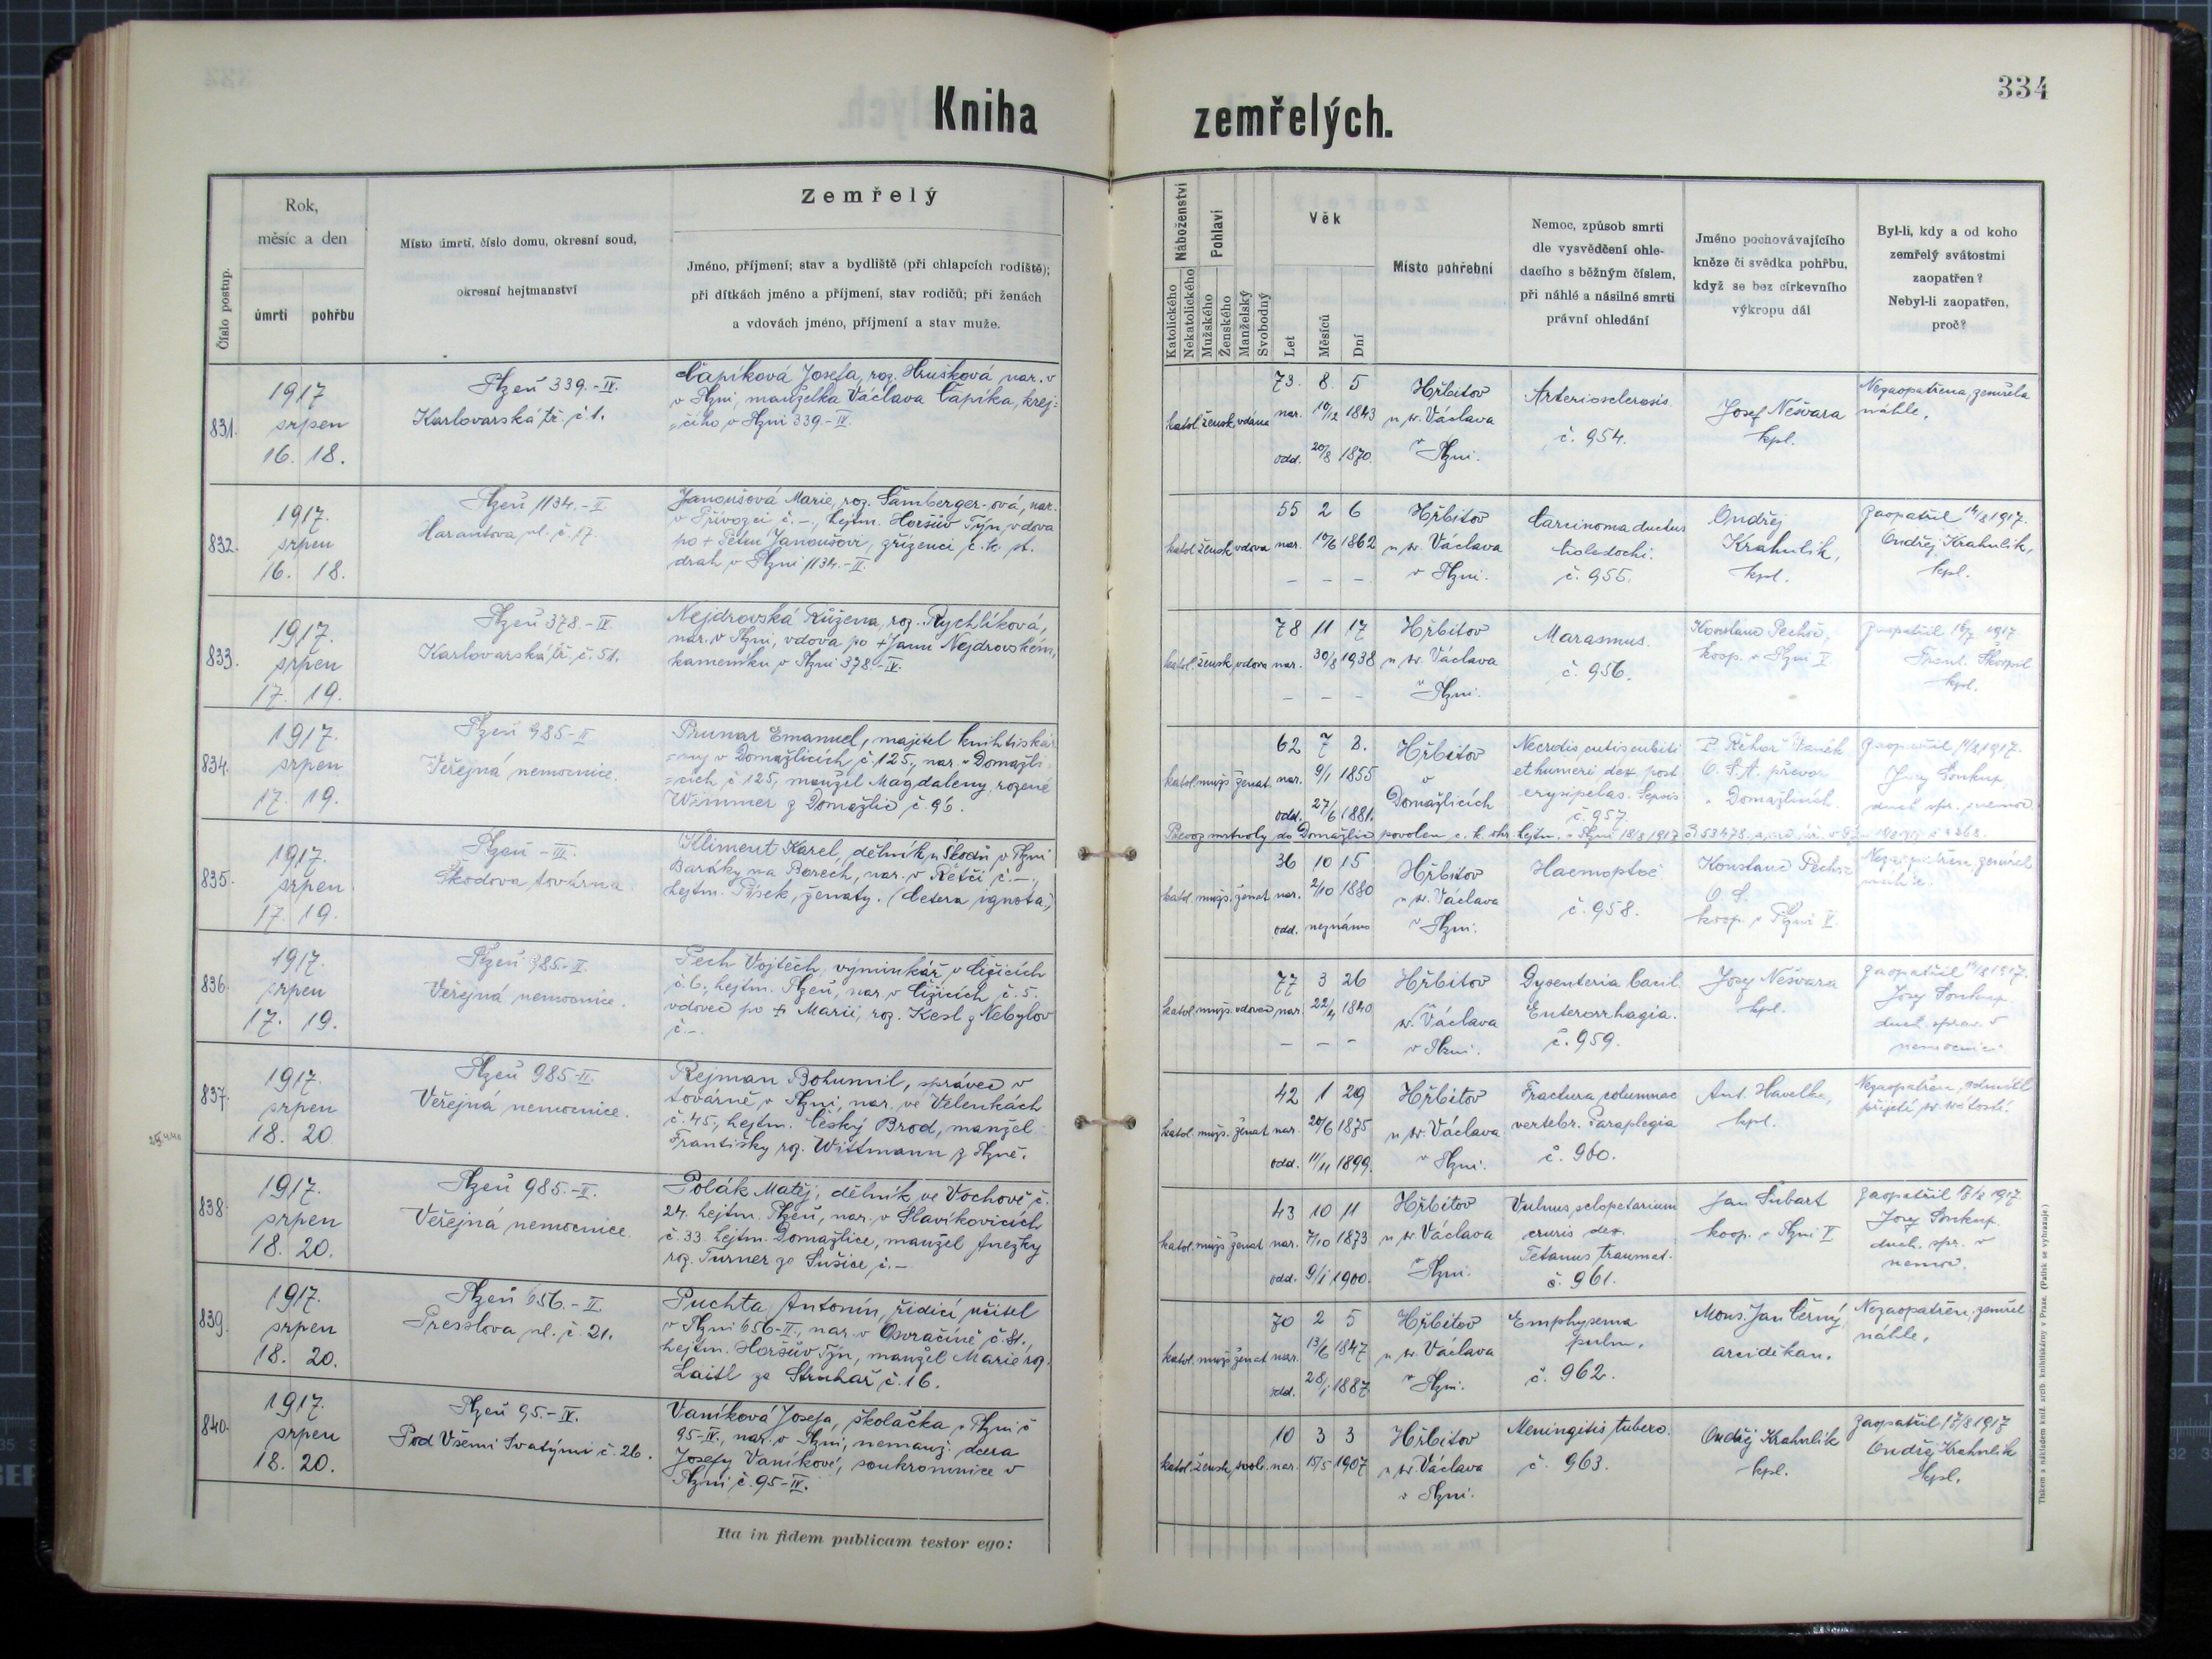 334
Kniha zemřelých.
Číslo postup.
Rok,
měsíc a den
úmrtí
pohřbu
Místo úmrtí, číslo domu, okresní soud,
okresní hejtmanství
Zemřelý
Jméno, příjmení; stav a bydliště (při chlapcích rodiště);
při dítkách jméno a příjmení, stav rodičů; při ženách
a vdovách jméno, příjmení a stav muže.
Náboženství
Katolického
Nekatolického
Pohlaví
Mužského
Ženského
Manželský
Svobodný
Věk
Let
Měsíců
Dní
Místo pohřební
Nemoc, způsob smrti
dle vysvědčení ohle-
dacího s běžným číslem,
při náhlé a násilné smrti
právní ohledání
Jméno pochovávajícího
kněze či svědka pohřbu,
když se bez církevního
výkropu dál
Byl-li, kdy a od koho
zemřelý svátostmi
zaopatřen?
Nebyl-li zaopatřen,
proč?
831.
1917
srpen
16. 18.
Plzeň 339.-IV.
Karlovarská tř. č. 1.
Čapíková Josefa, roz. Hrušková nar. v
v Plzni, manželka Václava Čapíka, krej=
=čího v Plzni 339.-IV.
katol. žensk. vdaná
73. 8. 5
nar. 10/12 1843
odd. 20/8 1870.
Hřbitov
u sv. Václava
v Plzni.
Arteriosclerosis
č. 954.
Josef Nešvara
kpl.
Nezaopatřena, zemřela
náhle.
832.
1917.
srpen
16. 18.
Plzeň 1134.-II
Harantova ul. č. 17.
Janoušová Marie, roz. Šamberger-ová, nar.
v Přívozci č. -, hejtm. Horšův Týn, vdova
po + Petru Janoušovi, zřízenci c. k. st.
drah v Plzni 1134.-II.
katol. žensk. vdova
55 2 6
nar. 10/6 1862
- - -
Hřbitov
u sv. Václava
v Plzni.
Carcinoma ductus
choledochi.
č. 955.
Ondřej
Krahulík,
kpl.
Zaopatřil 14/8 1917.
Ondřej Krahulík,
kpl.
833.
1917.
srpen
17. 19.
Plzeň 378.-IV.
Karlovarská tř. č. 51.
Nejdrovská Růžena, roz. Rychlíková,
nar. v Plzni, vdova po + Janu Nejdrovském,
kameníku v Plzni 378.-IV.
katol. žensk. vdova
78 11 17
nar. 30/8 1938
- - -
Hřbitov
u sv. Václava
v Plzni.
Marasmus.
č. 956.
koop. v Plzni V.
Zaopatřil 1917
kpl.
834.
1917.
srpen
17. 19.
Plzeň 985-II
Veřejná nemocnice.
Prunar Emanuel, majitel knihtiskár
=ny v Domažlicích č. 125., nar. v Domažli
=cích č. 125, manžel Magdaleny, rozené
Wimmer z Domažlic č. 96.
katol. mužs. ženat
62 7 8.
nar. 9/1 1855
odd. 27/6 1881.
Hřbitov
v
Domažlicích
Necrotis cutis cubiti
et humeri dex. post
erysipelas. Sepsis
č. 957.
O. S. A. převor
v Domažlicích.
Zaopatřil 14/8 1917.
Josef Soukup,
duch. spr. v nemoc.
Převoz mrtvoly do Domažlic povolen c. k. okr. hejtm. v Plzni 18/8 1917 č. 53478.
835.
1917.
srpen
17. 19.
Plzeň -III.
Škodova továrna
Kliment Karel, dělník u Škodů v Plzni
Baráky na Borech, nar. v Řetči č. -.,
hejtm. Písek, ženatý. (Cetera ignota.)
katol. mužs. ženat
36 10 15
nar. 2/10 1880
odd. neznámo
Hřbitov
u sv. Václava
v Plzni.
Haemoptoë
č. 958.
O. S.
koop. v Plzni V.
Nezaopatřen, zemřel
náhle.
836.
1917.
srpen
17. 19.
Plzeň 985-II.
Veřejná nemocnice.
Pech Vojtěch, výminkář v Čižicích
č. 6., hejtm. Plzeň, nar. v Čižicích č. 5.
vdovec po + Marii, roz. Kesl z Nebylov
č. -.
katol. mužs. vdovec
77 3 26
nar. 22/4 1840
- - -
Hřbitov
u
sv. Václava
v Plzni.
Dysenteria bacil.
Enterorrhagia.
č. 959.
Josef Nešvara
kpl.
Zaopatřil 14/8 1917.
Josef Soukup
duch. správ. v
nemocnici.
837.
1917.
srpen
18. 20
Plzeň 985-II.
Veřejná nemocnice.
Rejman Bohumil, správce v
továrně v Plzni, nar. ve Velenkách
č. 45., hejtm. Český Brod, manžel
Františky roz. Wittmann z Plzně.
katol. mužs. ženat
42 1 29
nar. 20/6 1875
odd. 11/11 1899.
Hřbitov
u sv. Václava
v Plzni.
Fractura columnae
vertebr. Paraplegia
č. 960.
Ant. Havelka,
kpl.
Nezaopatřen, odmítl
přijetí sv. svátostí.
838.
1917.
srpen
18. 20.
Plzeň 985.-II.
Veřejná nemocnice.
Polák Matěj, dělník ve Vochově č.
24. hejtm. Plzeň, nar. v Slavíkovicích
č. 33. hejtm. Domažlice, manžel Anežky
roz. Turner ze Sušice, č. -
katol. mužs. ženat
43 10 11
nar. 7/10 1873
odd. 9/1 1900.
Hřbitov
u sv. Václava
v Plzni.
Vulnus sclopetarium
cruris dex.
Tetanus traumat.
č. 961.
Jan Šubart
koop. v Plzni V
Zaopatřil 1917
Josef Soukup
duch. spr. v
nemoc.
839.
1917.
srpen
18. 20.
Plzeň 656.-II.
Presslova ul. č. 21.
Puchta Antonín, řídící učitel
v Plzni 656-II., nar. v Osvračíně č. 81.,
hejtm. Horšův Týn, manžel Marie roz.
Laitl ze Struhař č. 16.
katol. mužs. ženat
70 2 5
nar. 13/6 1847
odd. 28/1 1887
Hřbitov
u sv. Václava
v Plzni.
Emphysema
pulm.
č. 962.
Mons. Jan Černý
arciděkan.
Nezaopatřen, zemřel
náhle.
840.
1917.
srpen
18. 20.
Plzeň 95.-IV.
Pod Všemi Svatými č. 26.
Vaníková Josefa, školačka v Plzni č
95-IV., nar. v Plzni, nemanž. dcera
Josefy Vaníkové, soukromnice v
Plzni č. 95-IV.
katol. žensk. svob.
10 3 3
nar. 15/5 1907
Hřbitov
u sv. Václava
v Plzni.
Meningitis tuberc.
č. 963.
Ondřej Krahulík
kpl.
Zaopatřil 17/8 1917
Ondřej Krahulík
kpl.
Ita in fidem publicam testor ego:
Tiskem a nákladem kníž. arcib. knihtiskárny v Praze. (Patisk se vyhrazuje.)